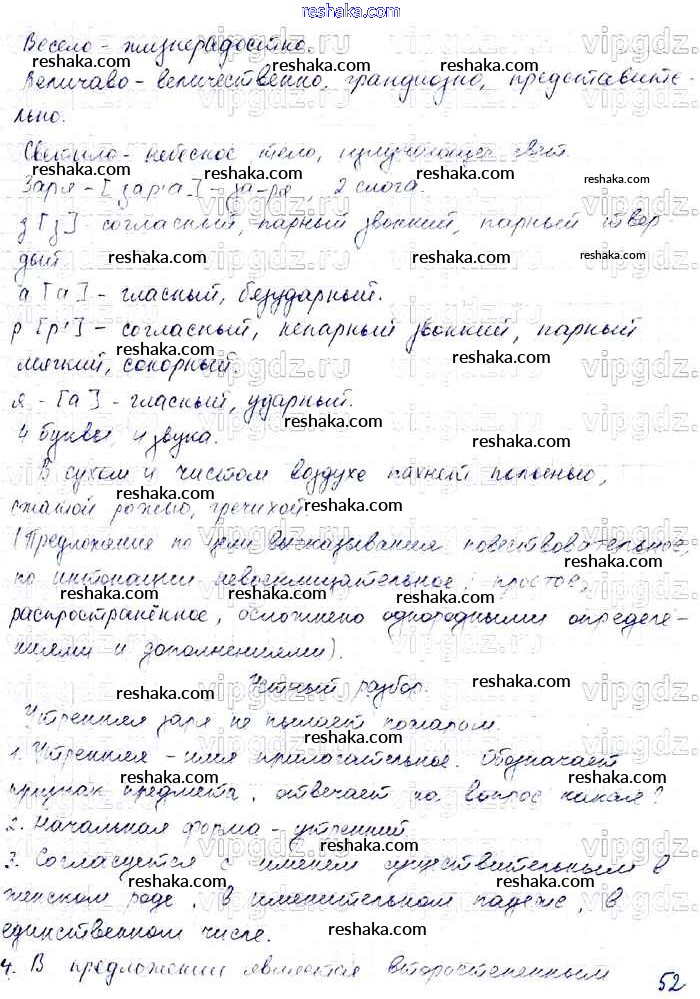 reshaka.com
Весело - жизнерадостно.
reshaka.com
Величаво - величественно, грандиозно, представите-
льно.
reshaka.com
Светило - небесное тело, излучающее свет.
Заря - [зар'а] - за-ря, 2 слога.
reshaka.com
з [з] - согласный, парный звонкий, парный твер
reshaka.com
дый
reshaka.com
а [а] - гласный, безударный.
reshaka.com
р [р'] - согласный, непарный звонкий, парный
reshaka.com
мягкий, сонорный.
reshaka.com
я - [а] - гласный, ударный.
reshaka.com
4 буквы, 4 звука.
reshaka.com
В сухом и чистом воздухе пахнет полынью,
reshaka.com
сжатой рожью, гречихой
reshaka.com
(Предложение по цели высказывания повествовательное,
reshaka.com
по интонации невосклицательное, простое,
reshaka.com
распространённое, осложнено однородными определе-
reshaka.com
ниями и дополнениями).
reshaka.com
Устный разбор.
reshaka.com
Утренняя заря не пылает пожаром.
reshaka.com
1. Утренняя - имя прилагательное. Обозначает
reshaka.com
признак предмета, отвечает на вопрос какая?
reshaka.com
2. Начальная форма - утренний.
reshaka.com
3. Согласуется с именем существительным в
reshaka.com
женском роде, в именительном падеже, в
reshaka.com
единственном числе.
reshaka.com
4. В предложении является второстепенным
52